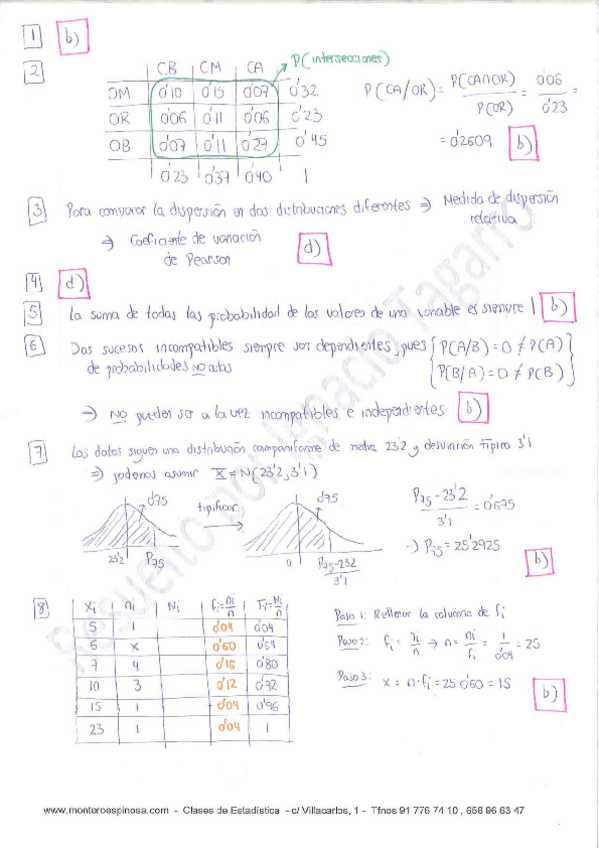 1 b)
2 CB CM CA P(intersecciones)
OM 0'10 0'15 0'07 0'32
OR 0'06 0'11 0'06 0'23
OB 0'07 0'11 0'27 0'45
0'23 0'37 0'40 1
P(CA/OR) = P(CA∩OR) / P(OR) = 0'06 / 0'23 =
= 0'2609 b)
3 Para comparar la dispersión en dos distribuciones diferentes ⇒ Medida de dispersión
relativa
⇒ Coeficiente de variación
de Pearson d)
4 d)
5 La suma de todas las probabilidad de los valores de una variable es siempre 1 b)
6 Dos sucesos incompatibles siempre son dependientes, pues { P(A/B) = 0 ≠ P(A) }
de probabilidades no nulas { P(B/A) = 0 ≠ P(B) }
→ NO pueden ser a la vez incompatibles e independientes b)
7 Los datos siguen una distribución campaniforme de media 23'2 y desviación típica 3'1
⇒ podemos asumir X ≡ N(23'2, 3'1)
0'75 tipificar 0'75
23'2 P75 0 P75-23'2 / 3'1
P75 - 23'2 / 3'1 = 0'675
→ P75 = 25'2925
b)
8 xi ni Ni fi = ni/n Fi = Ni/n
5 1 0'04 0'04
6 x 0'60 0'64
7 4 0'16 0'80
10 3 0'12 0'92
15 1 0'04 0'96
23 1 0'04 1
Paso 1: Rellenar la columna de fi
Paso 2: fi = ni/n → n = ni/fi = 1/0'04 = 25
Paso 3: x = n·fi = 25·0'60 = 15 b)
Resuelto por Ignacio Tagarro
www.monteroespinosa.com - Clases de Estadística - c/ Villacarlos, 1 - Tfnos 91 776 74 10 , 658 96 63 47